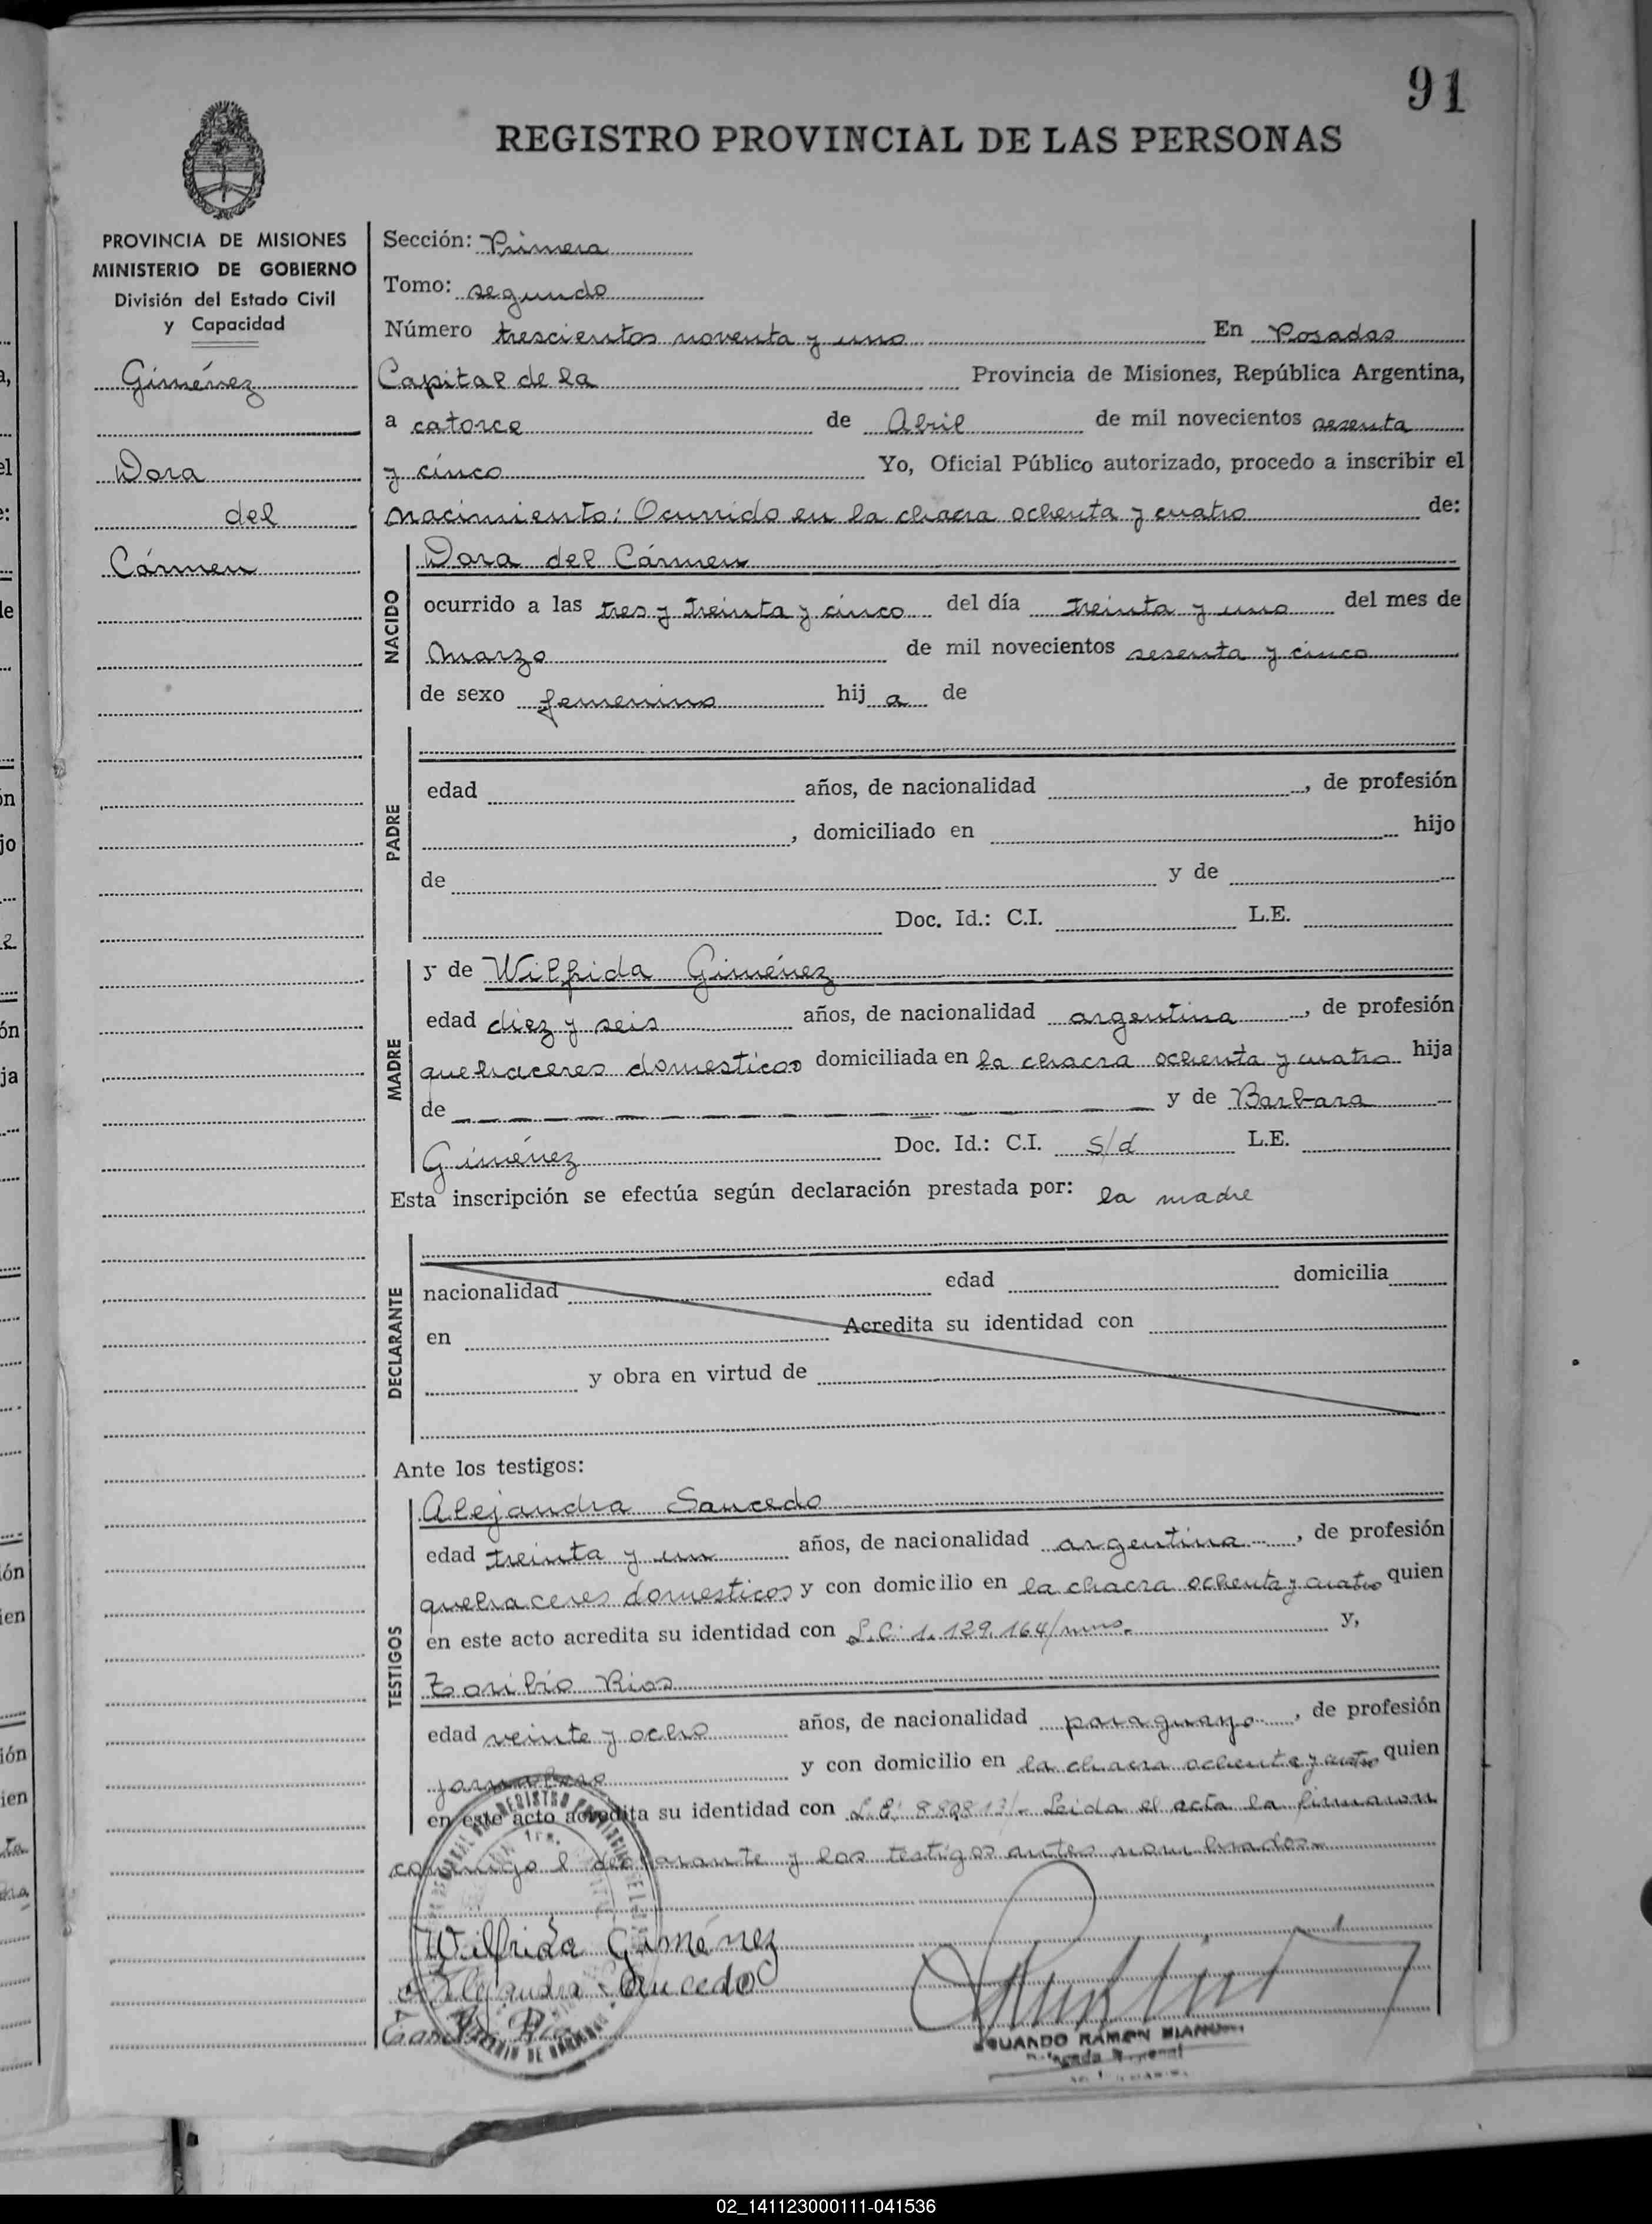 91
REGISTRO PROVINCIAL DE LAS PERSONAS
PROVINCIA DE MISIONES
MINISTERIO DE GOBIERNO
División del Estado Civil
y Capacidad
Giménez
Dora
del
Cármen
Sección: Primera
Tomo: segundo
Número trescientos noventa y uno En Posadas
Capital de la Provincia de Misiones, República Argentina,
a catorce de Abril de mil novecientos sesenta
y cinco Yo, Oficial Público autorizado, procedo a inscribir el
nacimiento: Ocurrido en la chacra ochenta y cuatro de:
NACIDO
Dora del Cármen
ocurrido a las tres y treinta y cinco del día treinta y uno del mes de
Marzo de mil novecientos sesenta y cinco
de sexo femenino hij a de
PADRE
edad años, de nacionalidad , de profesión
, domiciliado en hijo
de y de
Doc. Id.: C.I. L.E.
MADRE
y de Wilfrida Giménez
edad diez y seis años, de nacionalidad argentina, de profesión
quehaceres domesticos domiciliada en la chacra ochenta y cuatro hija
de y de Barbara
Giménez Doc. Id.: C.I. s/d L.E.
Esta inscripción se efectúa según declaración prestada por: la madre
DECLARANTE
nacionalidad edad domicilia
en Acredita su identidad con
y obra en virtud de
Ante los testigos:
TESTIGOS
Alejandra Saucedo
edad treinta y un años, de nacionalidad argentina, de profesión
quehaceres domesticos y con domicilio en la chacra ochenta y cuatro quien
en este acto acredita su identidad con L.C. 1.129.164/mns. y,
Toribio Rios
edad veinte y ocho años, de nacionalidad paraguayo, de profesión
jornalero y con domicilio en la chacra ochenta y cuatro quien
en este acto acredita su identidad con Leida el acta la firmaron
conmigo l declarante y los testigos antes nombrados.
Wilfrida Giménez
Alejandra Saucedo
RAMON
02_141123000111-041536